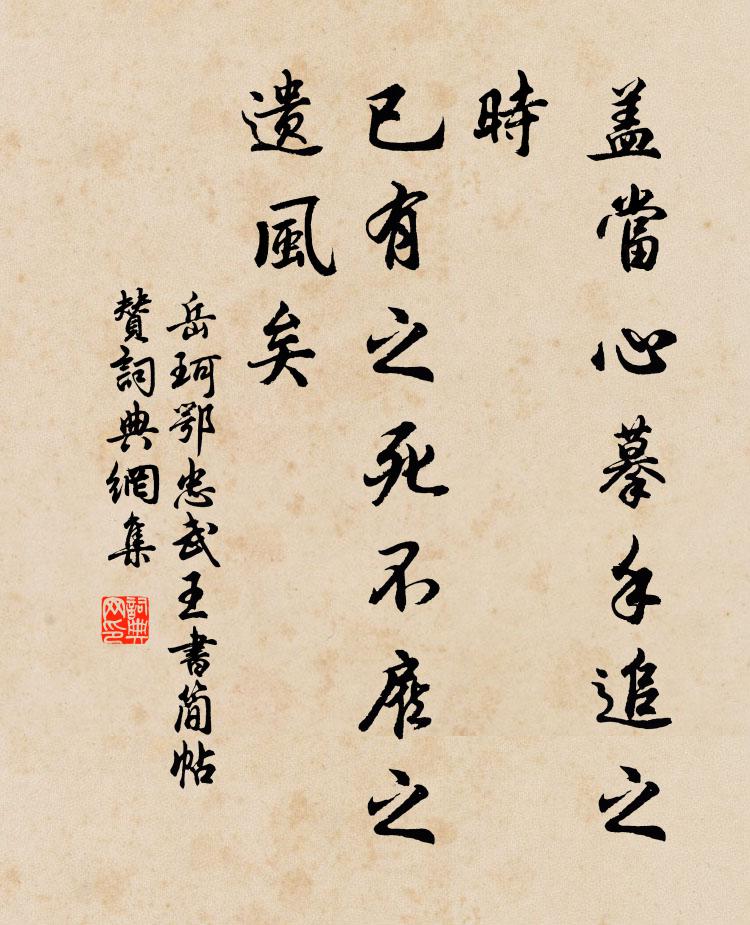 盖當心摹手追之
時
已有之死不靡之
遺風矣
岳珂鄂忠武王書簡帖
贊詞典網集
詞典
网印